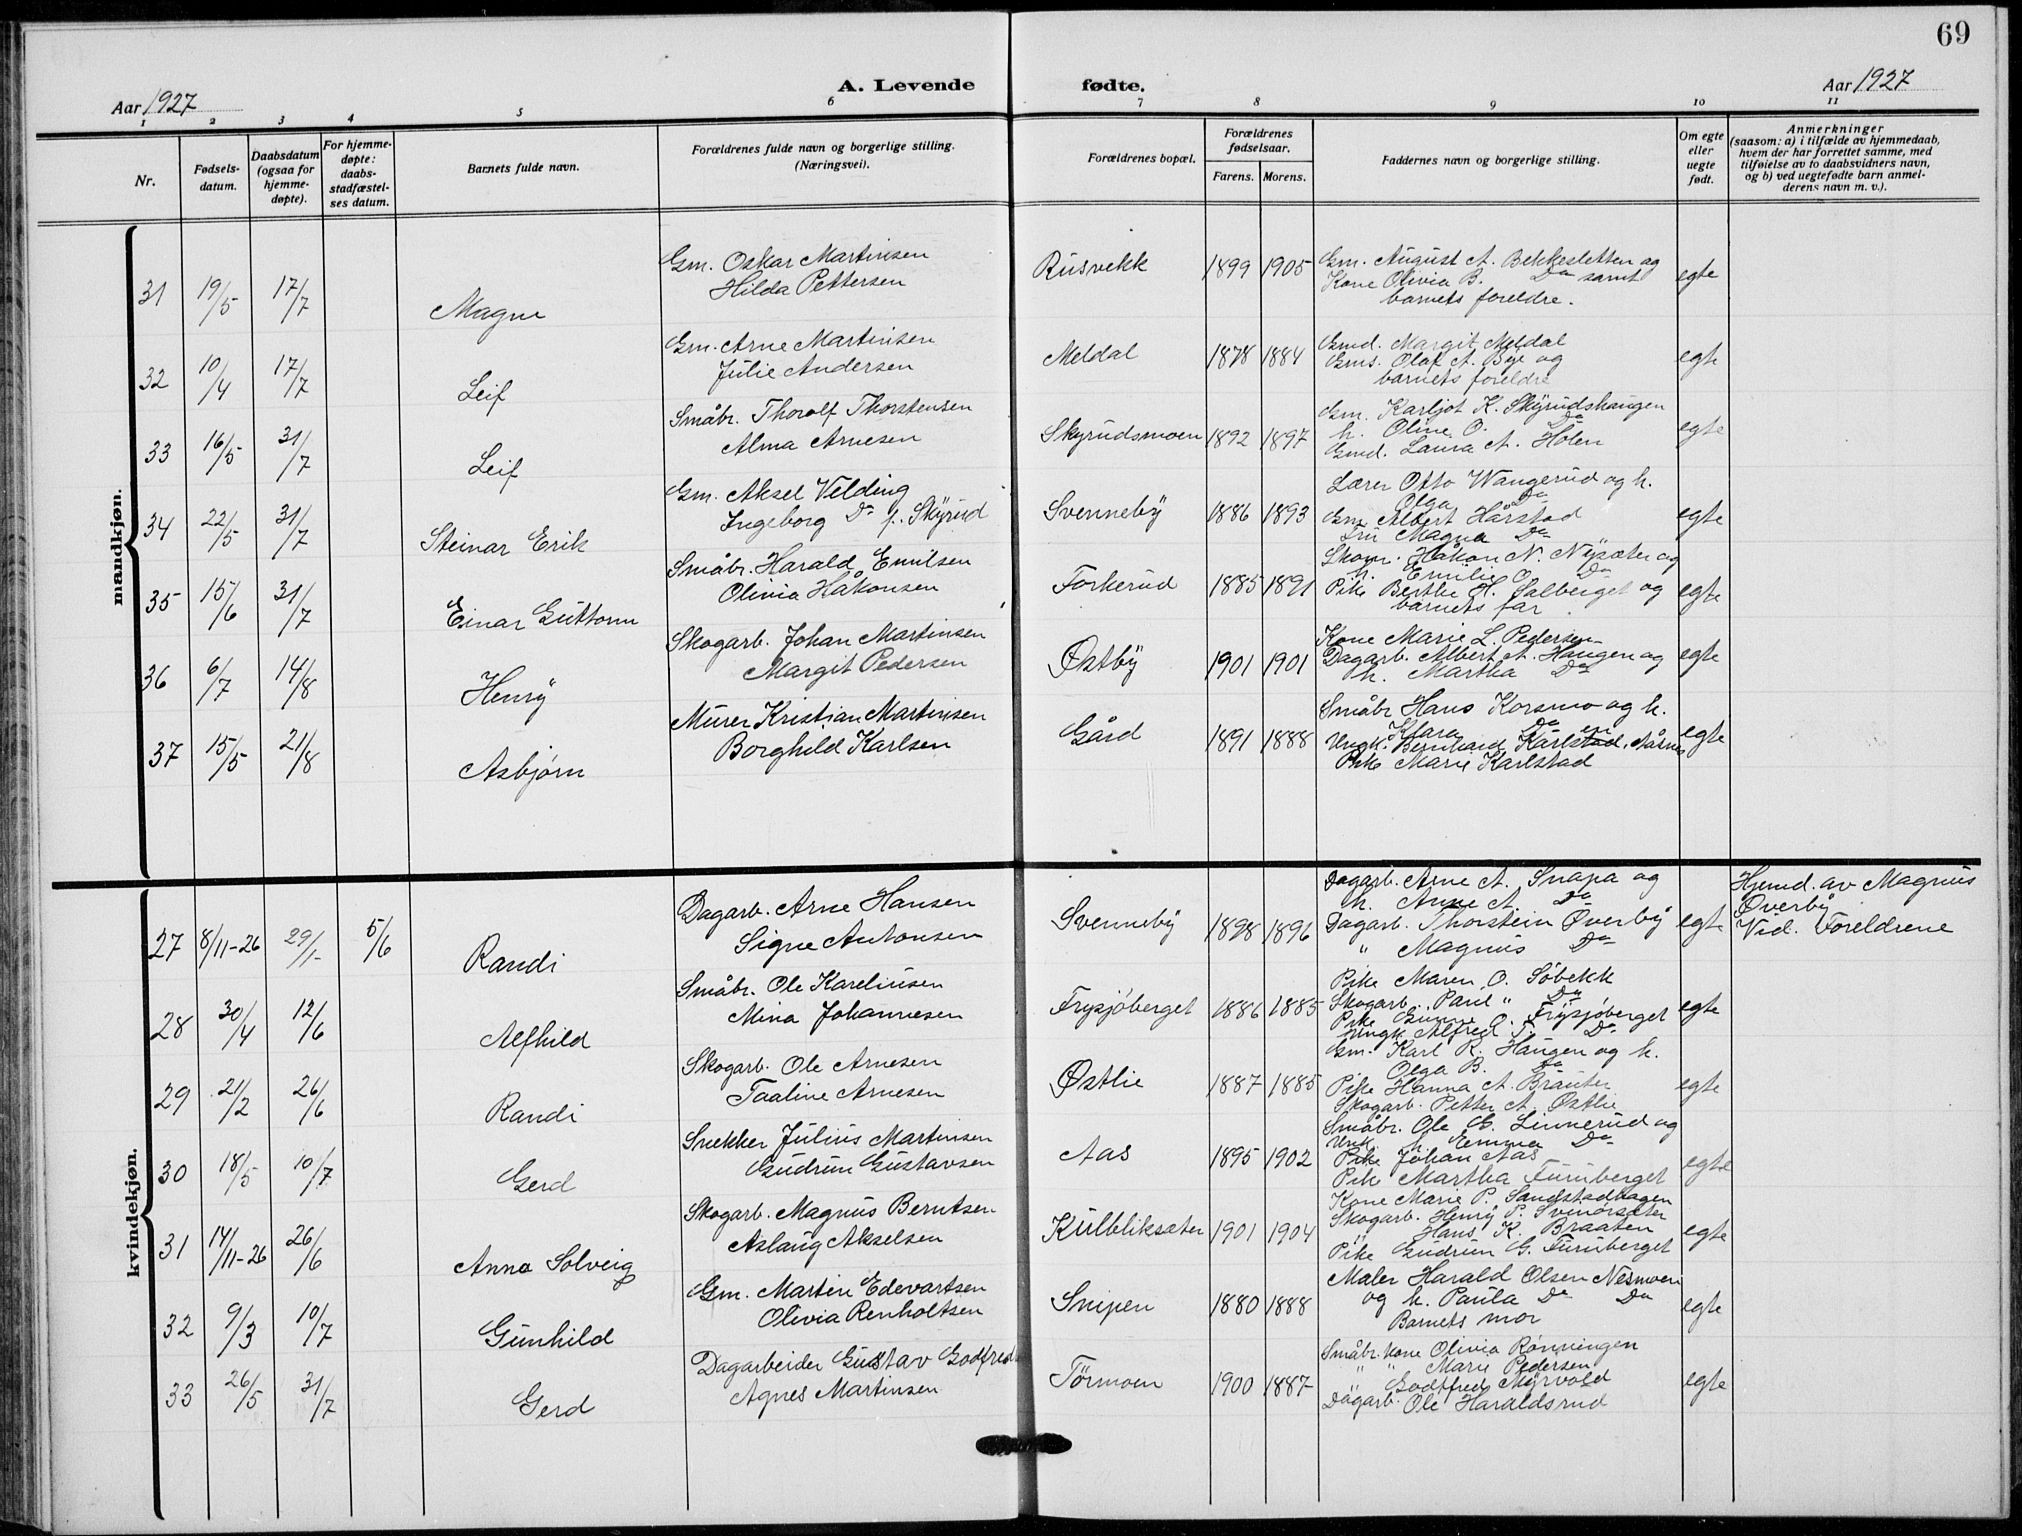 69
A. Levende fødte.
Aar 1927
Aar 1927
1 2 3 4 5 6 7 8 9 10 11
Nr.
Fødsels-
datum.
Daabsdatum
(ogsaa for
hjemme-
døpte).
For hjemme-
døpte:
daabs-
stadfæstel-
ses datum.
Barnets fulde navn.
Forældrenes fulde navn og borgerlige stilling.
(Næringsvei).
Forældrenes bopæl.
Forældrenes
fødselsaar.
Farens. Morens.
Faddernes navn og borgerlige stilling.
Om egte
eller
uegte
født.
Anmerkninger
(saasom: a) i tilfælde av hjemmedaab,
hvem der har forrettet samme, med
tilføielse av to daabsvidners navn,
og b) ved uegtefødte barn anmel-
derens navn m. v.).
mandkjøn.
31 19/5 17/7 Magne
Gm. Oskar Martinsen
Hilda Pettersen
Rusvekk 1899 1905
Gm. August A. Bekkesletten og
Kone Olivia B. Do samt
barnets foreldre.
egte
32 10/4 17/7 Leif
Gm. Arne Martinsen
Julie Andersen
Meldal 1878 1884
Gmd. Margit Meldal
Gms. Olaf A. Bye og
barnets foreldre
egte
33 16/5 31/7 Leif
Småbr. Thorolf Thorstensen
Alma Arnesen
Skyrudsmoen 1892 1897
Gm. Karljot K. Skyrudshaugen
h. Oline O. Do
Gmd. Laura A. Holen
egte
34 22/5 31/7 Steinar Erik
Gm. Aksel Velding
Ingeborg Do f. Skyrud
Svenneby 1886 1893
Lærer Otto Wangerud og h.
Olga Do
Gm. Albert Hårstad
Fru Magna Do
egte
35 15/6 31/7 Einar Guttorm
Småbr. Harald Emilsen
Olivia Håkonsen
Forkerud 1885 1891
Skom. Håkon N. Nysæter og
h. Emilie O. Do
Pike Berthe H. Salberget og
barnets far
egte
36 6/7 14/8 Henry
Skogarb. Johan Martinsen
Margit Pedersen
Østby 1901 1901
Kone Marie L. Pedersen
Dagarb. Albert A. Haugen og
h. Martha Do
egte
37 15/5 21/8 Asbjørn
Murer Kristian Martinsen
Borghild Karlsen
Gård 1891 1888
Småbr Hans Korsmo og h.
Klara Do
Ungk. Bernhard Karlsen, Åsnes
Pike Marie Karlstad
egte
kvindekjøn.
27 8/11-26 29/1- 5/6 Randi
Dagarb. Arne Hansen
Signe Antonsen
Svenneby 1898 1896
Dagarb. Arne A. Snapa og
h. Anne A. Do
Dagarb. Thorstein Øverby
" Magnus Do
egte
Hjemd. av Magnus
Øverby
Vid. Foreldrene
28 30/4 12/6 Alfhild
Småbr. Ole Kareliusen
Mina Johannesen
Frysjøberget 1886 1885
Pike Maren O. Søbekk
Skogarb. Paul " Do
Pike Gunne O. Frysjøberget
Ungk Alfred T. Do
egte
29 21/2 26/6 Randi
Skogarb. Ole Arnesen
Taaline Arnesen
Østlie 1887 1885
Gm. Karl R. Haugen og h.
Olga B. Do
Pike Hanna A. Bråuter
Skogarb. Petter A. Østlie
egte
30 18/5 10/7 Gerd
Snekker Julius Martinsen
Gudrun Gustavsen
Aas 1895 1902
Småbr. Ole G. Linnerud og
h. Emma Do
Unk. Johan Aas
Pike Martha Furuberget
egte
31 14/11-26 26/6 Anna Solveig
Skogarb. Magnus Berntsen
Aslaug Akselsen
Kulbliksæter 1901 1904
Kone Marie P. Sandstadhagen
Skogarb. Henry P. Svinørsæter
" Hans K. Braaten
Pike Gudrun G. Furuberget
egte
32 9/3 10/7 Gunhild
Gm. Martin Edevartsen
Olivia Renholtsen
Snipen 1880 1888
Maler Harald Olsen Nesmoen
og h. Paula Do Do
Barnets mor
egte
33 26/5 31/7 Gerd
Dagarbeider Gustav Godtfreds
Agnes Martinsen
Tørmoen 1900 1887
Småbr. kone Olivia Rønningen
" " Marie Pedersen
" Godtfred Myrvold
Dagarb. Ole Haraldsrud
egte